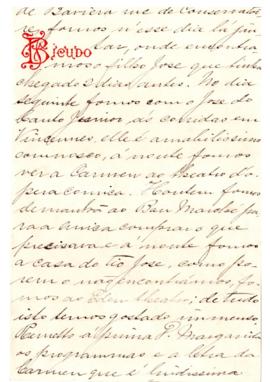 de Baviera rue de Conservatoi
re fomos n'esse dia lá jan
tar, onde encontra
Bicudo
mos o filho José que tinha
chegado 2 dias antes. No dia
seguinte fomos com o José do
Canto Junior ás corridas em
Vincennes, elle é amabilissimo
comnosco, a noute fomos
ver a Carmen ao theatro do
pera comica. Hontem fomos
de manhã ao Bau Marché pa
ra a Anica comprar o que
precisava e a noute fomos
a casa do tio José, como po
rem o não encontramos, fo
mos ao Eden theatro; de tudo
isto temos gostado immenso.
Remetto a prima P. Margarida
os programmas e a letra da
Carmen que é lindissima